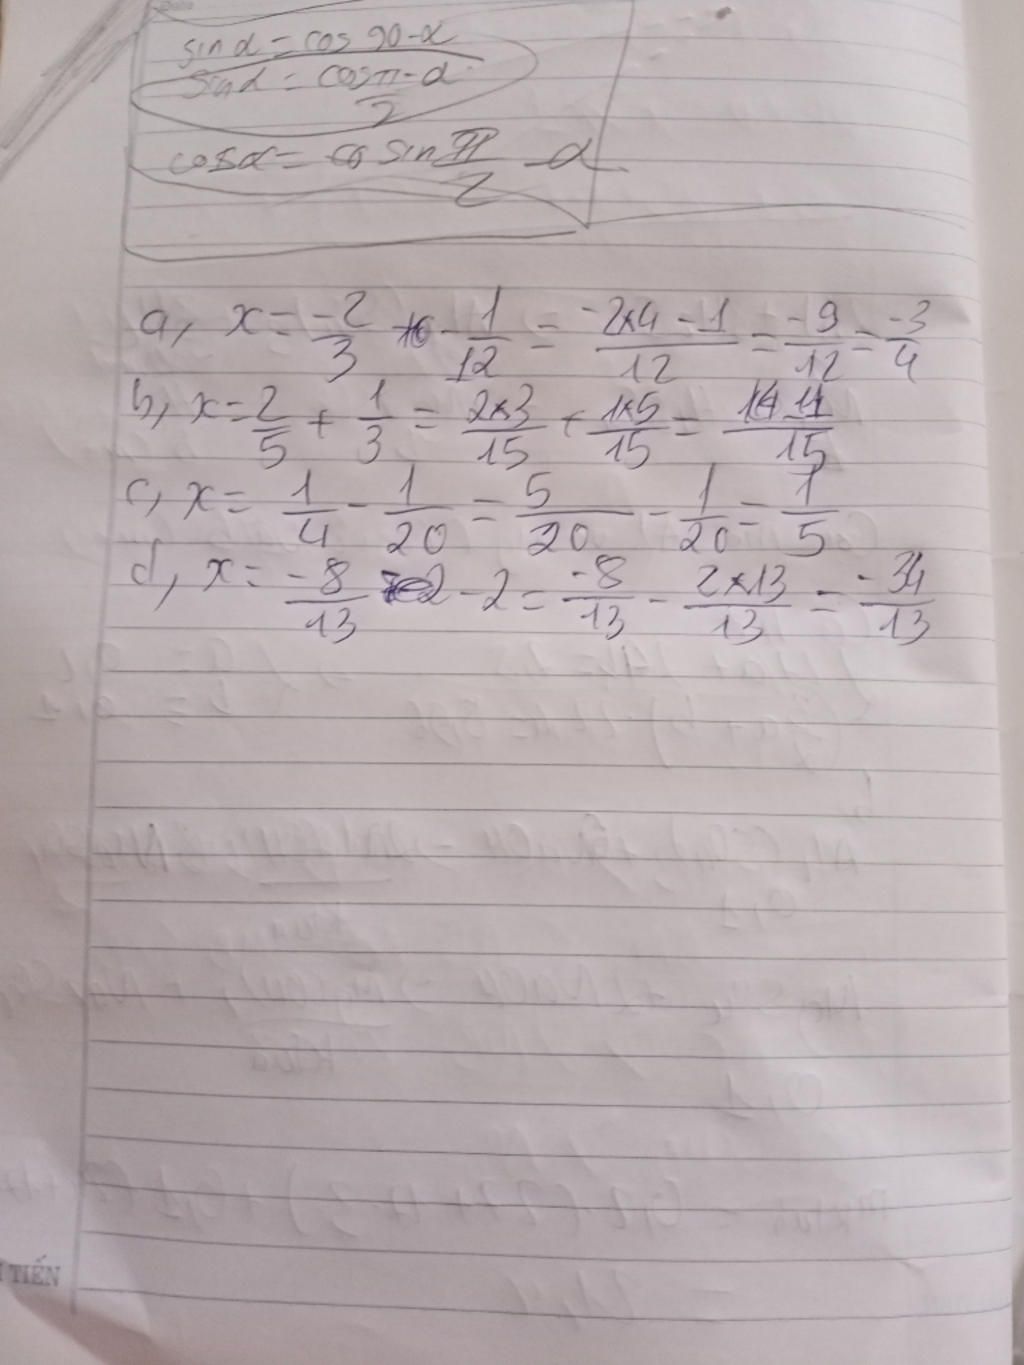 sin α = cos 90 - α
sin α = cos π/2 - α
cos α = sin π/2 - α
a, x = -2/3 - 1/12 = (-2×4 - 1)/12 = -9/12 = -3/4
b, x = 2/5 + 1/3 = 2×3/15 + 1×5/15 = 11/15
c, x = 1/4 - 1/20 = 5/20 - 1/20 = 1/5
d, x = -8/13 - 2 = -8/13 - 2×13/13 = -34/13
TIẾN